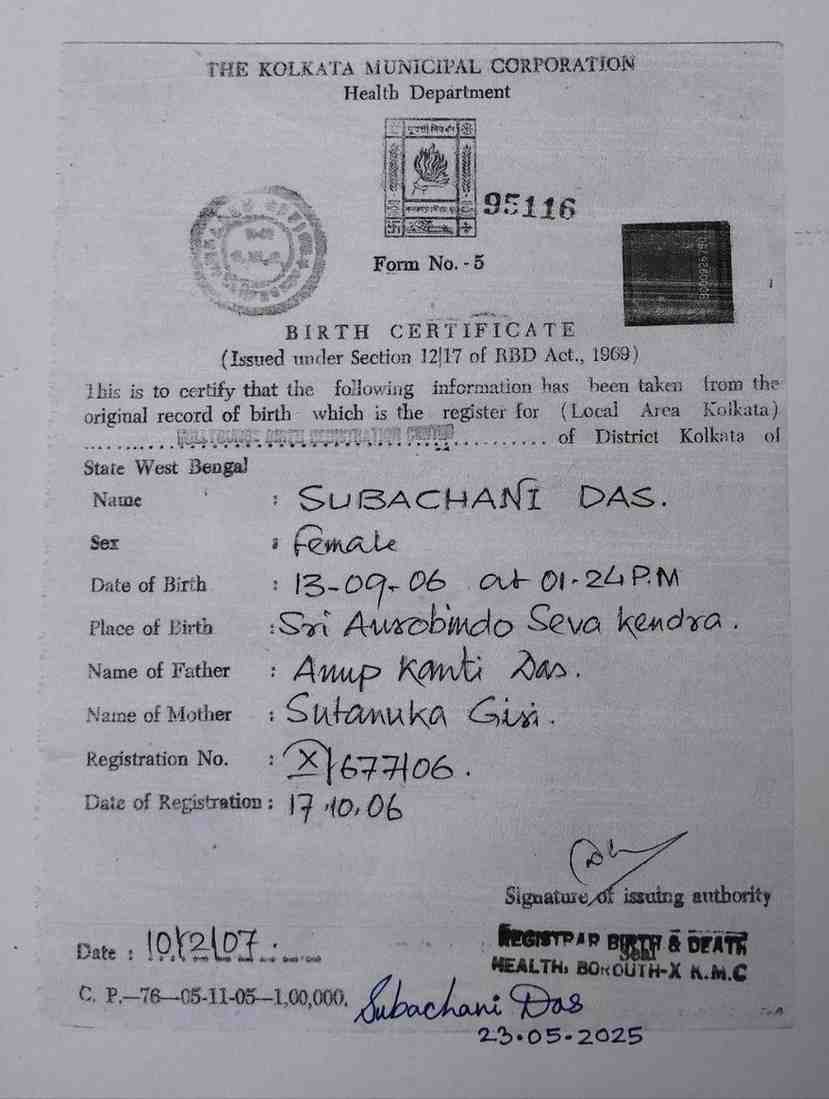 THE KOLKATA MUNICIPAL CORPORATION
Health Department
95116
Form No. - 5
BIRTH CERTIFICATE
(Issued under Section 12|17 of RBD Act., 1969)
This is to certify that the following information has been taken from the
original record of birth which is the register for (Local Area Kolkata)
of District Kolkata of
State West Bengal
Name : SUBACHANI DAS.
Sex : Female
Date of Birth : 13-09-06 at 01-24 P.M
Place of Birth : Sri Aurobindo Seva Kendra.
Name of Father : Anup Kanti Das.
Name of Mother : Sutanuka Giri.
Registration No. : X/677/06.
Date of Registration : 17.10.06
Signature of issuing authority
Date : 10/2/07
REGISTRAR BIRTH & DEATH
Seal
HEALTH, BOROUTH-X K.M.C
C. P.—76—05-11-05—1,00,000.
Subachani Das
23.05.2025